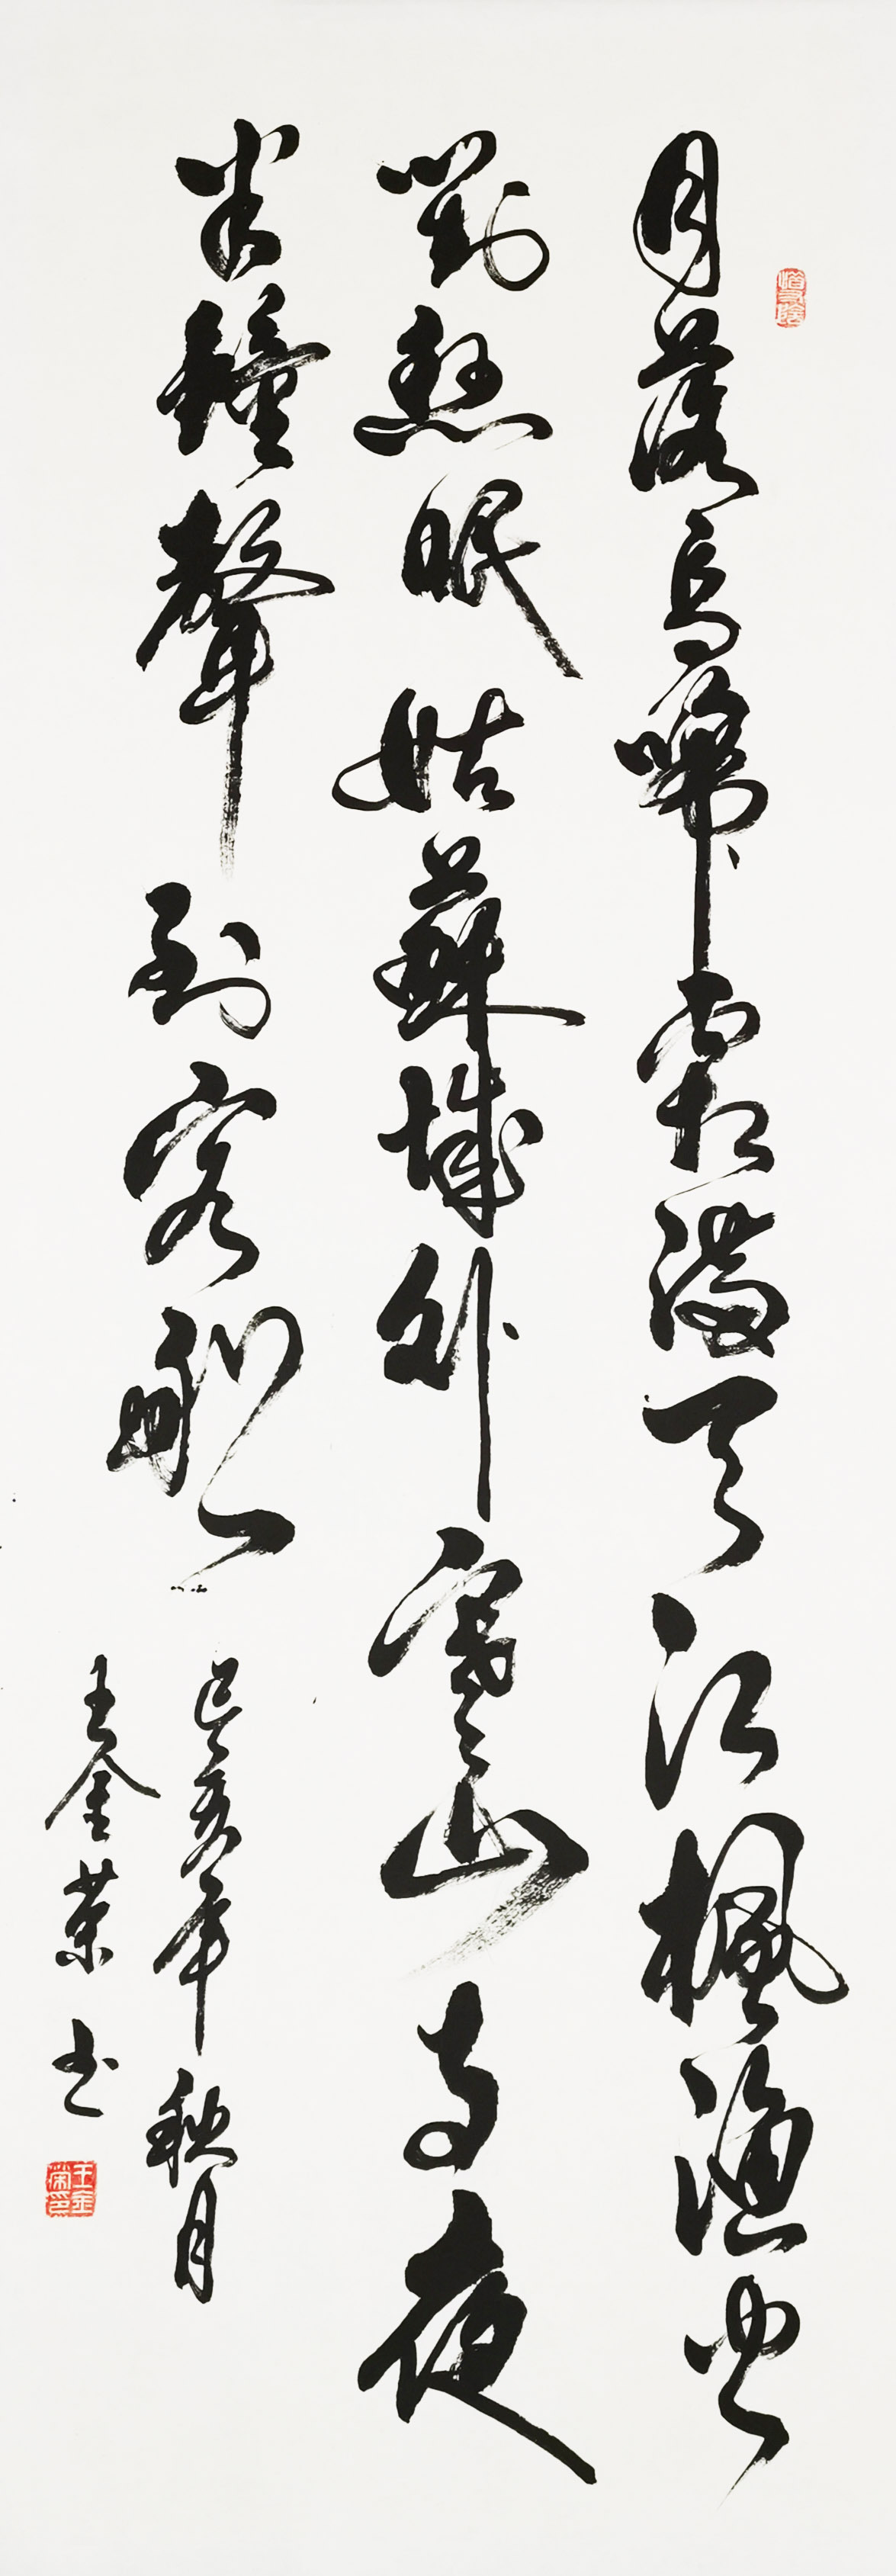 月落烏啼霜滿天江楓漁火
對愁眠姑蘇城外寒山寺夜
半鐘聲到客船
己亥年秋月
王金荣书
王金荣印